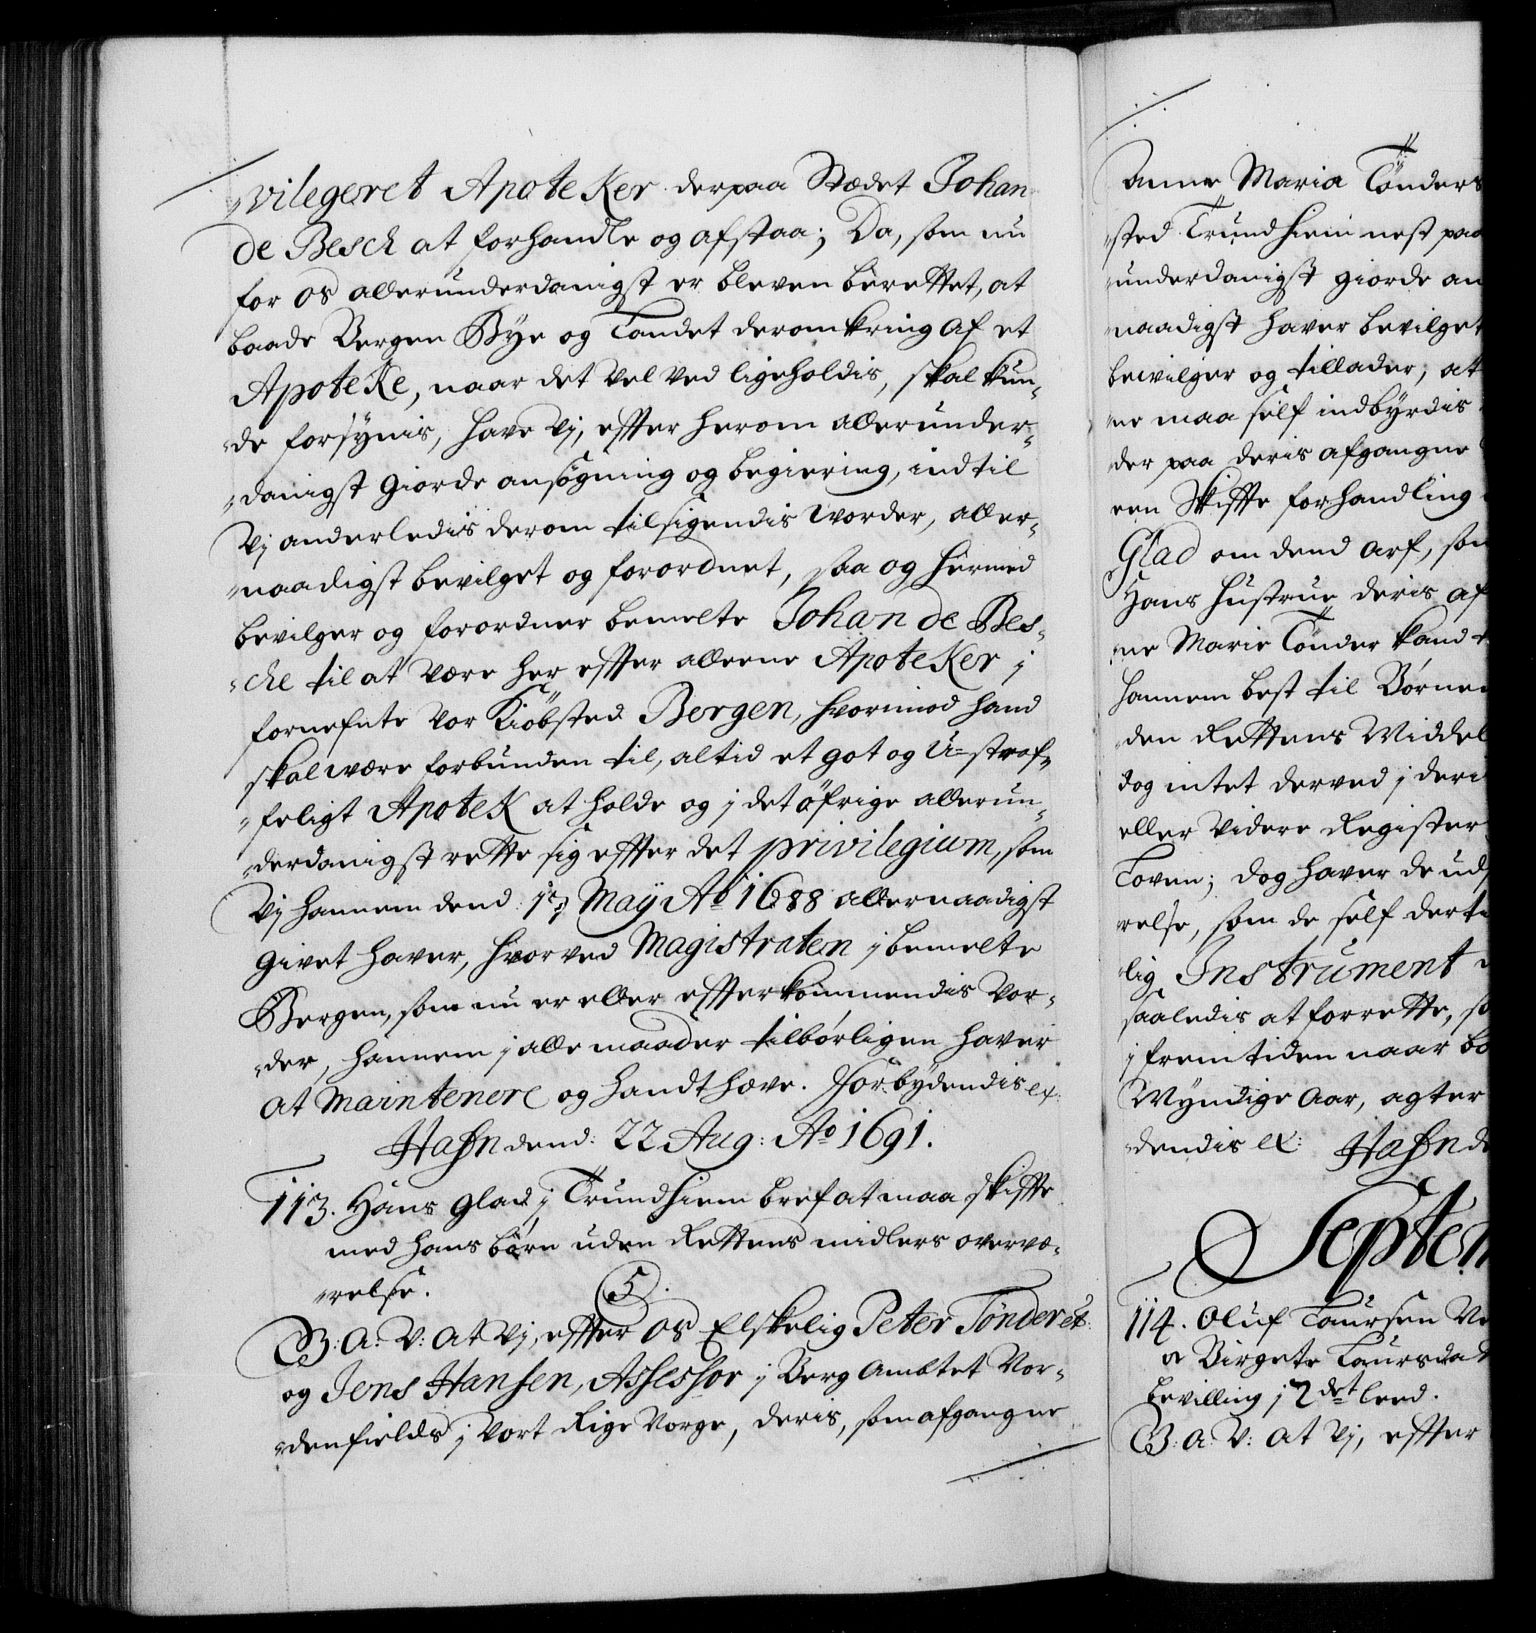 vilegeret Apoteker derpaa Stædet Johan
de Besch at forhandle og afstaa; Da, som nu
for os allerunderdanigst er bleven berettet, at
baade Bergen Bye og Landet deromkring af et
Apoteke, naar det vel ved ligeholdis, skal kun-
de forsynis, have Vj, effter herom allerunder-
danigst giorde ansøgning og begiering, indtil
Vj anderledis derom tilsigendis worder, aller-
naadigst bevilget og forordnet, saa og hermed
bevilger og forordner bemelte Johan de Bes-
che til at være her effter alleene Apoteker j
fornefnte vor Kiøbsted Bergen, hvorimod hand
skal være forbunden til, altid et got og U-straf-
feligt Apotek at holde og j det øfrige allerun-
derdanigst rette sig effter det privilegium, som
Vj hannem dend 1te May Ao 1688 allernaadigst
givet haver, hvorved Magistraten j bemelte
Bergen, som nu er eller effterkommendis vor-
der, hannem j alle maader tilbørligen haver
at maintenere og handthæve. Forbydendis etc:
Hafn dend: 22 Aug: Ao 1691.
113. Hans Glad j Trundhiem bref at maa skiffte
med hans børn uden Rettens midlers overvæ-
relse.
5.
G: A: V: At Vj, effter os Elskelig Peter Tønder etc:
og Jens Hansen, Assessor j Berg Ambtet Nor-
denfields j vort Rige Norge, deris, som afgangne
Anne Maria Tønders
sted Trundhiem nest paa
underdanigst giorde an
naadigst haver bevilget
bewilger og tillader, att
ne maa self indbyrdis
der paa deris afgangne
een Skiffte forhandling
Glad om dend arf, som
Hans Hustrue deris af
ne Marie Tønder kand
hannem best til Børne
den Rettens Middel
dog intet derved j deri
eller videre Register
Loven; dog haver de ud
relse, som de self dert
lig Instrument
saaledis at forrette, so
j fremtiden naar bø
Myndige Aar, agter
dendis etc: Hafn de
Septem
114. Oluf Laursen
o Birgete Laursda
bevilling j 2det leed.
G: A: V: At Vj, effter